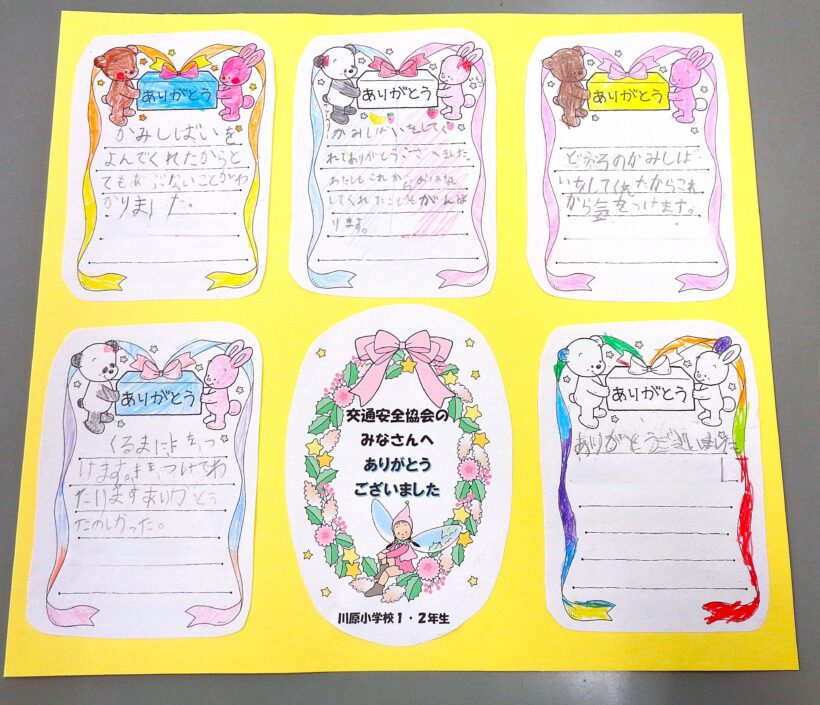 ありがとう
かみしばいを
よんでくれたからと
てもあぶないことがわ
かりました。
ありがとう
かみしばいをしてく
れてありがとうございました。
わたしもこれから
してくれたことも がんば
ります。
ありがとう
どうろのかみしば
いをしてくれたからこれ
から気をつけます。
ありがとう
くるまにきをつ
けます。きをつけてわ
たりますありがとう
たのしかった。
交通安全協会の
みなさんへ
ありがとう
ございました
川原小学校1・2年生
ありがとう
ありがとうございました